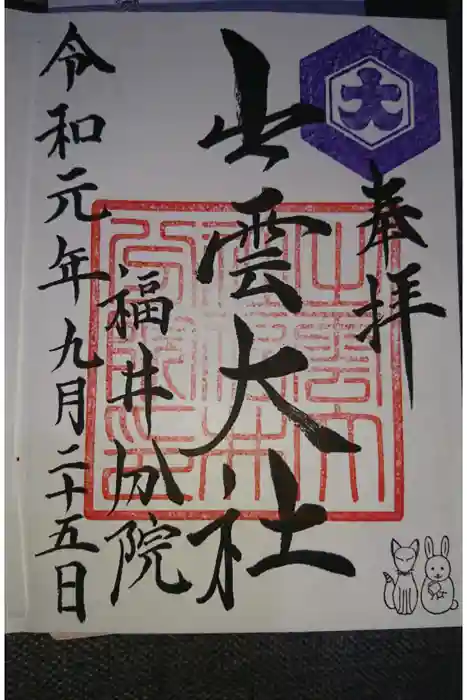 大
奉拝
出雲大社
福井分院
令和元年九月二十五日